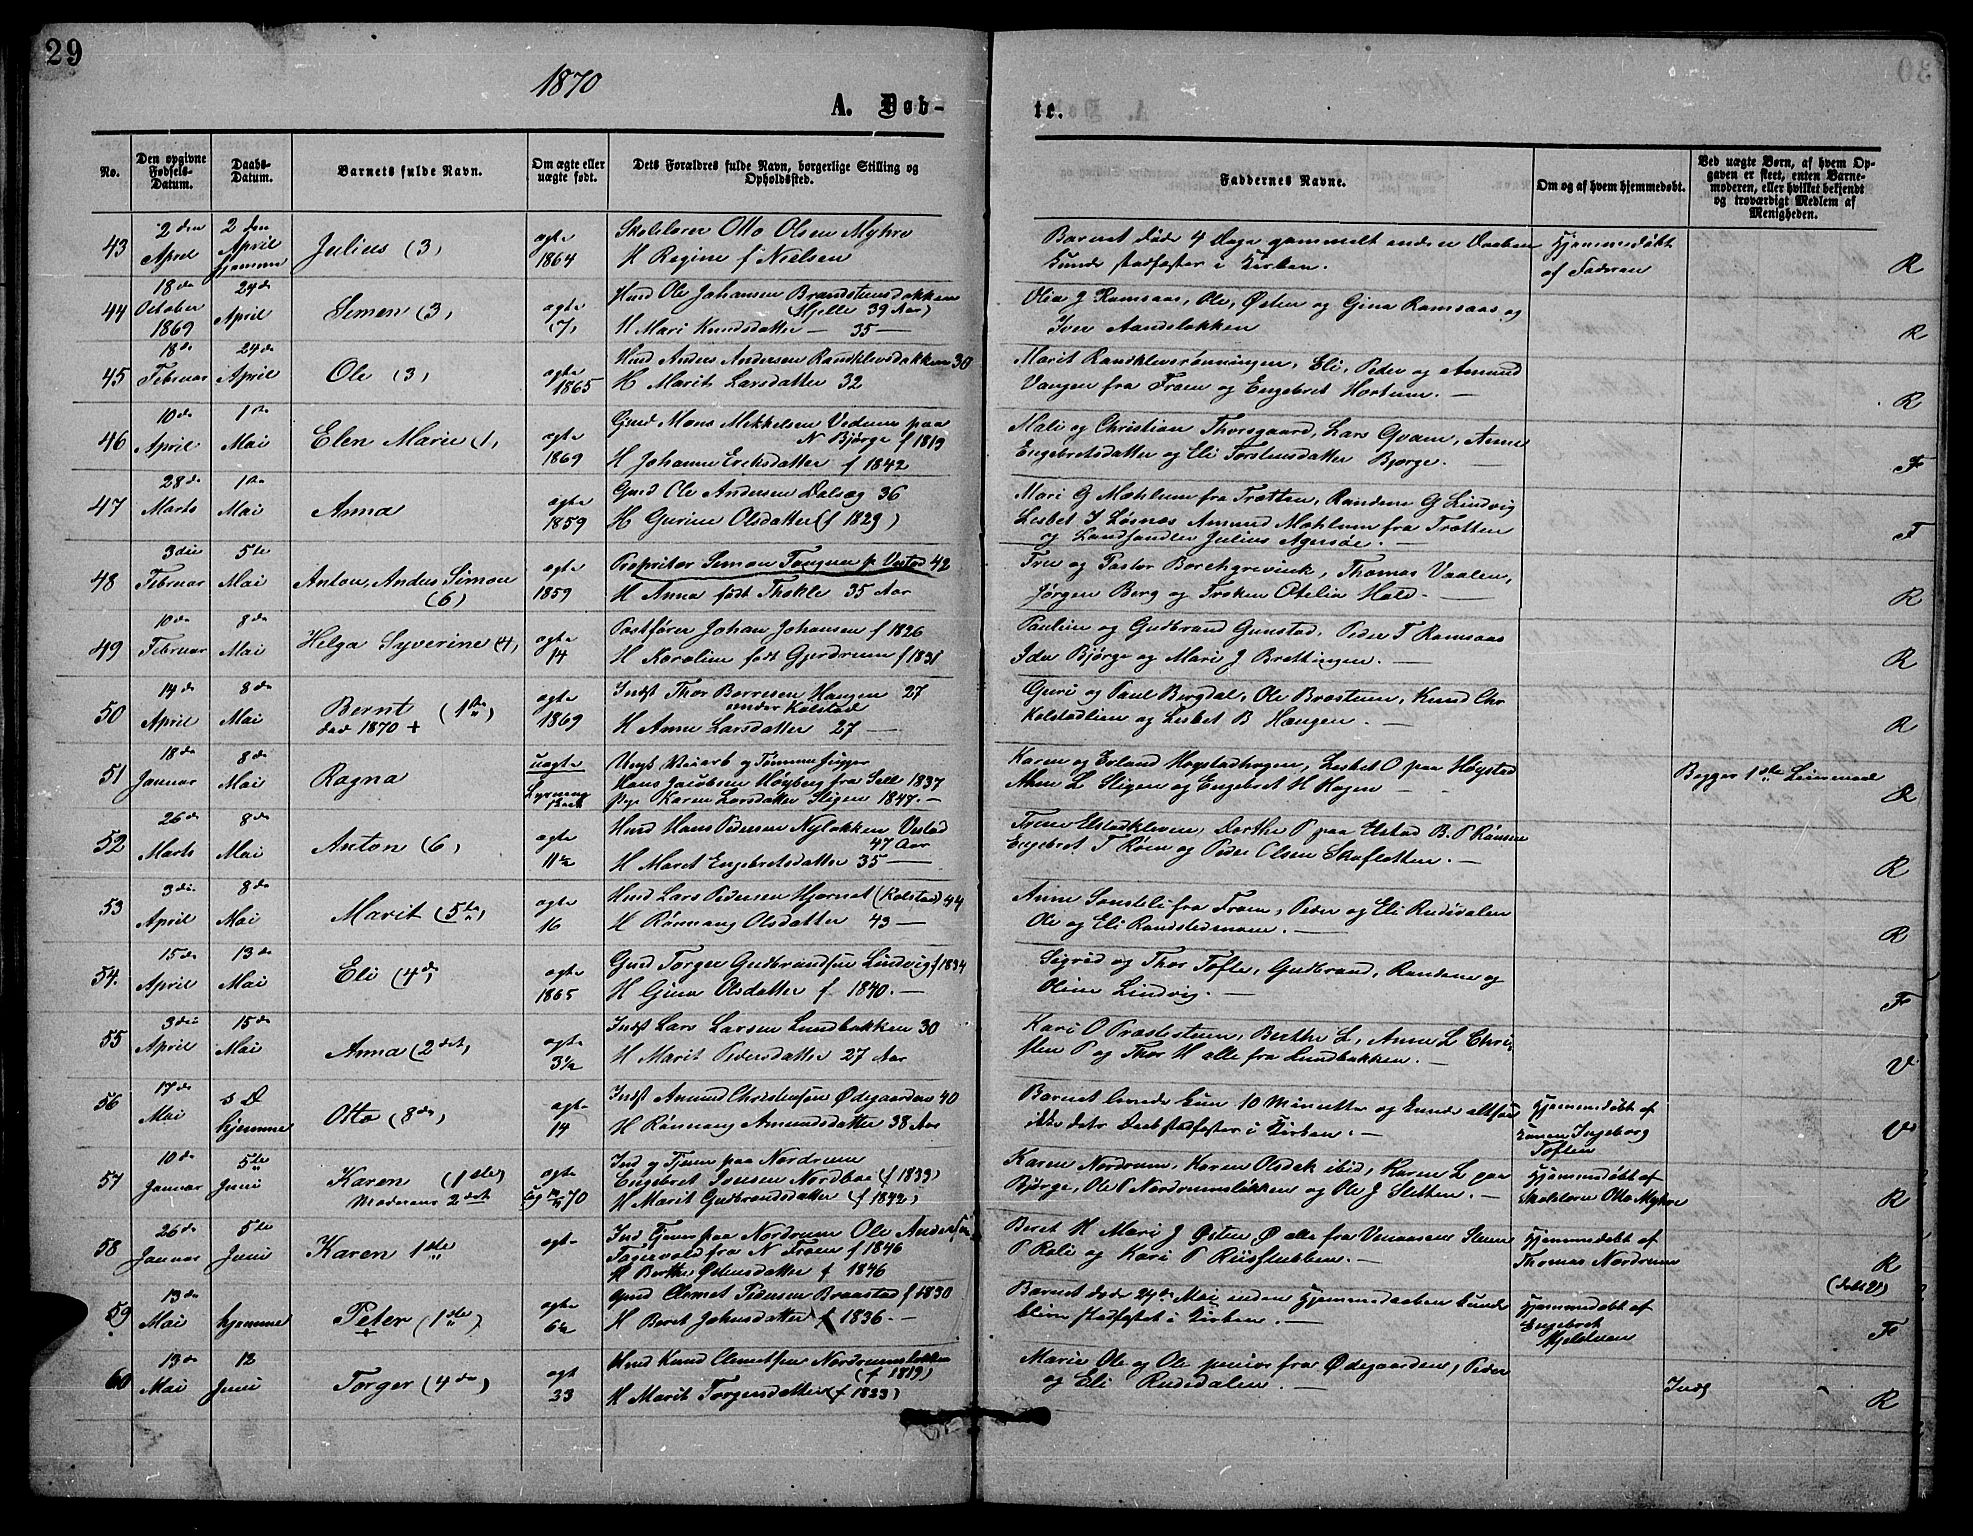 29
30
1870
A. Døb-
te.
No.
Den opgivne Fødsels-Datum.
Daabs-Datum.
Barnets fulde Navn.
Om ægte eller uægte født.
Dets Forældres fulde Navn, borgerlige Stilling og Opholdssted.
Faddernes Navne.
Om og af hvem hjemmedøbt.
Ved uægte Børn, af hvem Opgaven er skeet, enten Barnemoderen, eller hvilket bekjendt og troværdigt Medlem af Menigheden.
43 2den April 2den April hjemme Julius (3) ægte 1864
Skolelærer Otto Olsen Myhre
H Regine f Nielsen
Barnet døde 4 Dage gammelt inden Daaben
kunde stadfæstes i Kirken.
Hjemmedøbt
af Faderen
R
44 18de October 1869 24de April Simen (3) ægte (7)
Husm Ole Johansen
39 Aar)
H Mari Knudsdatter — 35 —
Olia J Ramsaas, Ole, Østen og Gina Ramsaas og
Iver
R
45 18de Februar 24de April Ole (3) ægte 1865
Husm Anders Andersen Randklevsbakken 30
H Marit Larsdatter 32
Marit Randklevsrønningen, Eli, Peder og Amund
Vangen fra Froen og Engebret Hortum. —
R
46 10de April 1ste Mai Elen Marie (1) ægte 1869
Grd Mons Mikkelsen Vedum paa
N Bjørge f 1819
H Johanne Eriksdatter f 1842
Mali og Christian Thorsgaard, Lars Qvam, Anne
Engebretsdatter og Eli Torstensdatter Bjørge. —
F
47 28de Marts 1ste Mai Anna ægte 1859
Grd Ole Andersen Dalseg 36
H Gurine Olsdatter (f 1829)
Mari G Mæhlum fra Trætten, Randine G Lindvig
Lisbet J Løsnæs Amund Mæhlum fra Trætten
og Landhandler Julius Agersøe. —
F
48 3die Februar 5te Mai Anton Anders Simon (6) ægte 1859
Propritær Simon p. Vestad 42
H Anna født Thokle 35 Aar
Fru og Pastor Borchgrevink, Thomas Vaalen,
Jørgen Berg og Frøken Otelia Hald. —
R
49 10de Februar 8de Mai Helga Syverine (4) ægte 14
Postfører Johan Johansen f 1826
H Karoline født Gjerdrum f 1831
Pauline og Gudbrand Gunstad, Peder T Ramsaas
Ida Bjørge og Mari J Brettingen. —
R
50 14de April 8de Mai Bernt (1ste) død 1870 + ægte 1869
Indst Thor Borresen Haugen 27
under Kolstad
H Anne Larsdatter 27 —
Guri og Paul Bergdal, Ole Bræstuen, Knud Chr
Kolstadlien og Lisbet B Haugen. —
R
51 18de Januar 8de Mai Ragna uægte
Ungk Veiarb og Tømmerhugger
Hans Jacobsen Høyberg fra Sell 1837
pige Karen Larsdatter Stigen 1847. —
Karen og Erland Høystadhagen, Lisbet O paa Høystad
L Stigen og Engebret H Hagen —
Begges 1ste Leiermaal
R
52 26de Marts 8de Mai Anton (6) ægte 11½
Husm Hans Pedersen Nyløkken Vestad
47 Aar
H Maret Engebretsdatter 35 —
Elstadkleven, Dorthe P paa Elstad B. P Rønsen
Engebret T Roen og Peder Olsen Skafletten. —
R
53 3die April 8de Mai Marit (5te) ægte 16
Husm Lars Pedersen Hjørnet (Kolstad) 44
H Rønnaug Olsdatter 43 —
Anne fra Froen, Peder og Eli Rudsdalen
Ole og Eli Randstedmoen. —
R
54. 15de April 13de Mai Eli (4de) ægte 1865
Grd Torger Gudbrandsen Lindvig f 1834
H Gina Olsdatter f 1840. —
Sigrid og Thor Tofte, Gudbrand, Randine og
Oline Lindvig. —
F
55 3die April 15de Mai Anna (2det) ægte 3½
Indst Lars Larsen Lundbakken 30
H Marit Pedersdatter 27 Aar
Kari O Præstestuen, Berthe L, Anne L Chri-
sten P og Thor H alle fra Lundbakken. —
V
56 17de Mai s D hjemme Otto (8de) ægte 14
Indst Amund Christensen Ødegaarden 40
H Rønnaug Amundsdatter 38 Aar
Barnet levede kun 10 Minutter og kunde altsaa
ikke dets Daab stadfæstes i Kirken. —
Hjemmedøbt af
Konen Ingeborg
Toften
V
57 10de Januar 5te Juni Karen (1ste) Moderens 2det ægte
Ind og Tjener paa Nordrum
Engebret Nordboe (f 1839)
H Marit Gudbrandsdatter (f 1842)
Karen Nordrum, Karen Olsdat ibid, Karen L paa
Bjørge, Ole P Nordrumsløkken og Ole J Sletten. —
Hjemmedøbt af
Skolelærer Otto Myhre
R
58 26de Januar 5te Juni Karen 1ste ægte
Ind Tjener paa Nordrum Ole Andersen
Fagervold fra N Froen f 1846
H Berthe Østensdatter f 1846
Beret H Mari J Østen Ø alle fra Venaasen
P Roli og Kari P Riisflubben. —
Hjemmedøbt af
Thomas Nordrum
R
59 13de Mai hjemme Peter (1ste) + ægte 6½
Grd Clemet Pedersen Braastad f 1830
H Beret Johnsdatter f 1836. —
Barnet døde 24de Mai inden Hjemmedaaben kunde
blive stadfæstet i Kirken. —
Hjemmedøbt af
Engebret
(døbt V)
F
60 13de Mai 12 Juni Torger (4de) ægt 33
Husm Knud Clemetsen Nordrumsløkken
(f 1819)
H Marit Torgersdatter (f 1833)
Marie Ole og Ole junior fra Ødegaarden, Peder
og Eli Rudsdalen. —
R